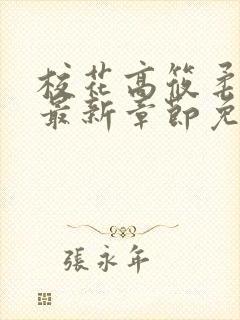 校花高筱柔
最新章節免
張永年